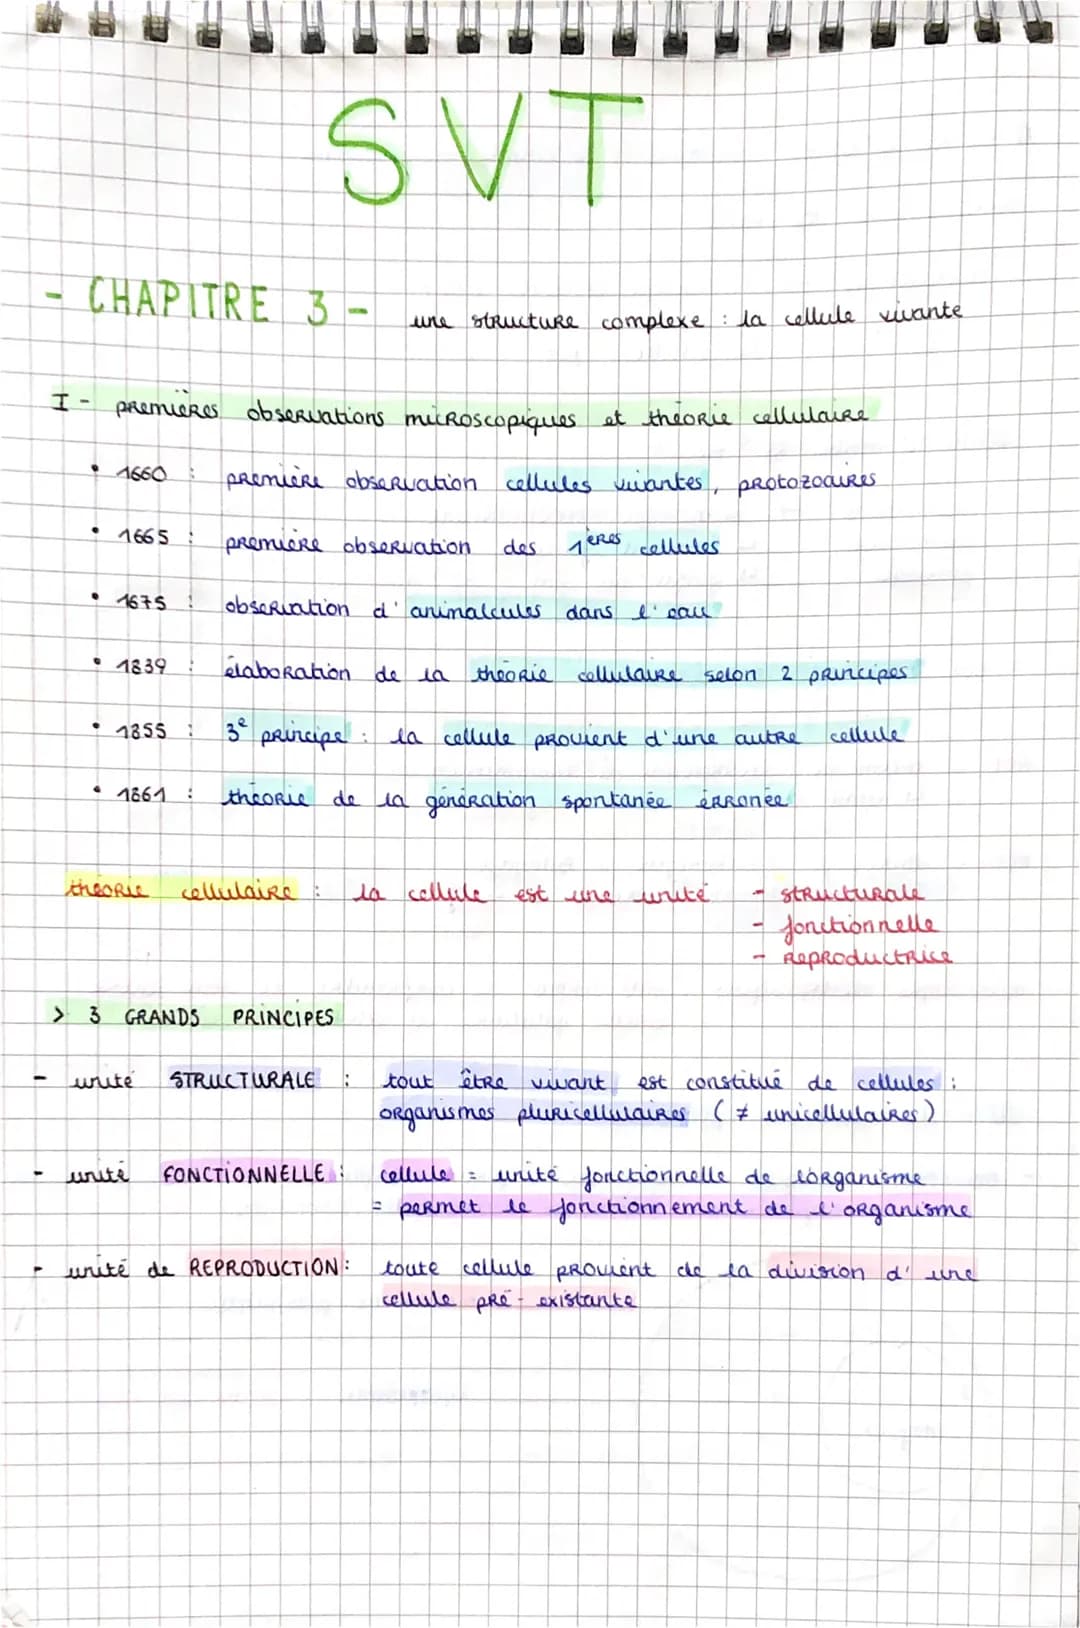 SVT
- CHAPITRE 3 - une structure complexe : la cellule vivante
I - premières observations microscopiques et théorie cellulaire
• 1660 : première observation cellules vivantes, protozoaires
• 1665 : première observation des 1ères cellules
• 1675 : observation d'animalcules dans l'eau
• 1839 : élaboration de la théorie cellulaire selon 2 principes
• 1855 : 3e principe : la cellule provient d'une autre cellule
• 1861 : théorie de la génération spontanée érronée
théorie cellulaire : la cellule est une unité - structurale
- fonctionnelle
- reproductrice
> 3 GRANDS PRINCIPES
- unité STRUCTURALE : tout être vivant est constitué de cellules :
organismes pluricellulaires (≠ unicellulaires)
- unité FONCTIONNELLE : cellule = unité fonctionnelle de l'organisme
= permet le fonctionnement de l'organisme
- unité de REPRODUCTION : toute cellule provient de la division d'une
cellule pré-existante